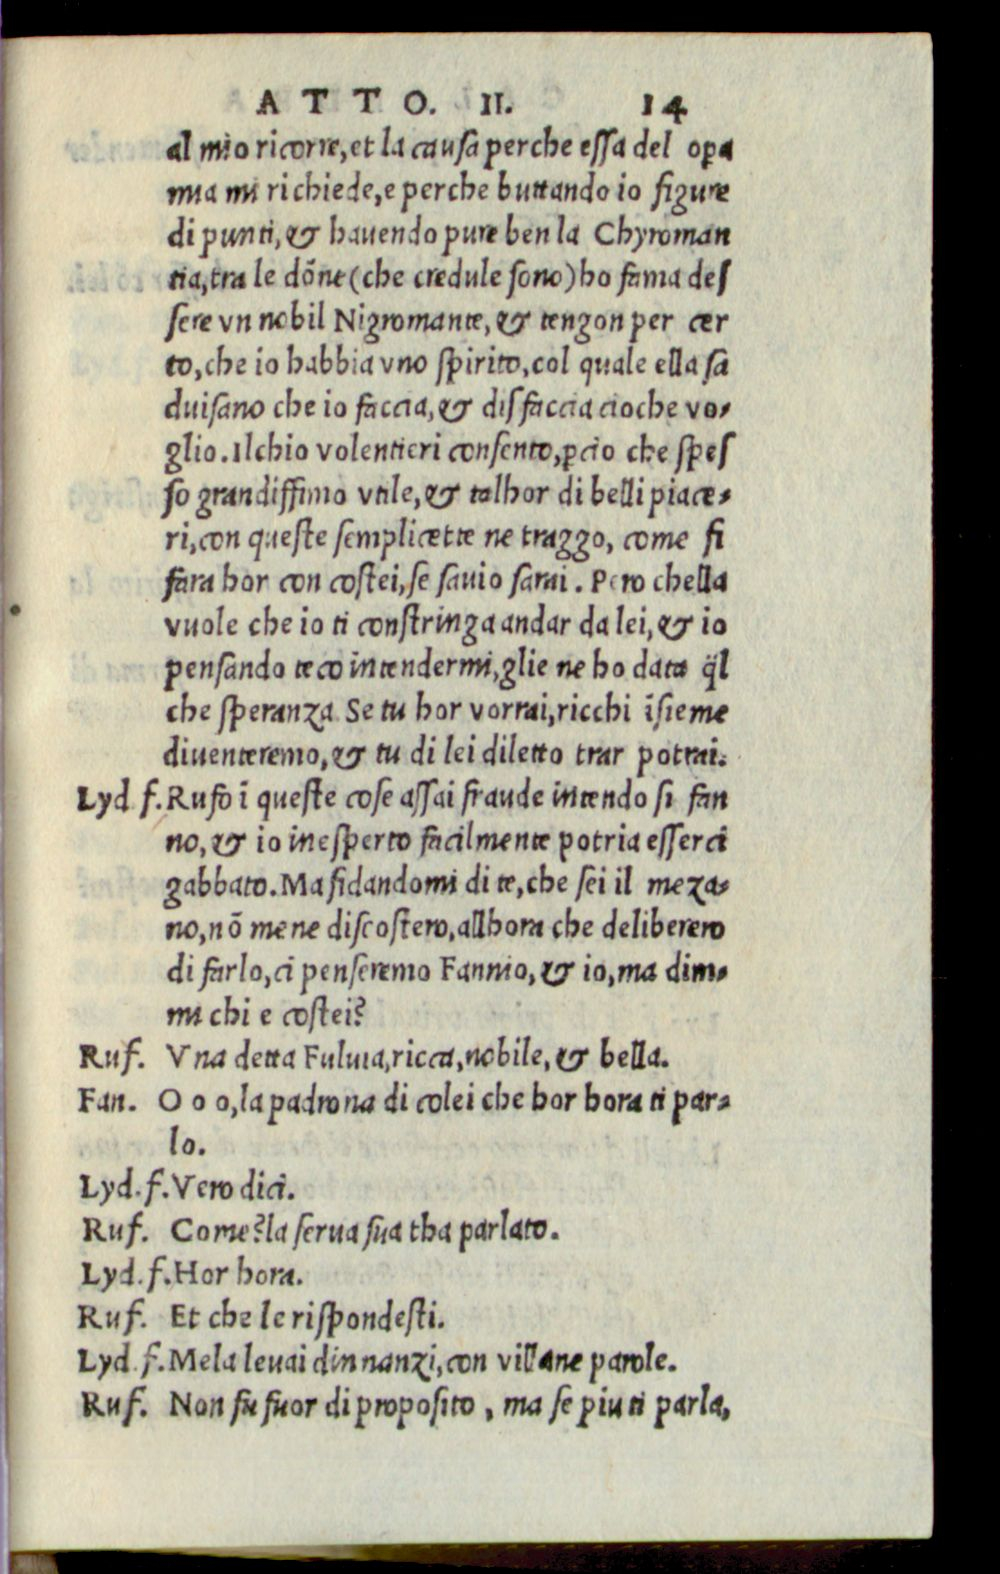 ATTO. II. 14
al mio ricorre, et la causa perche essa del opa
mia mi richiede, e perche buttando io figure
di punti, & hauendo pure ben la Chyroman
tia, tra le dōne (che credule sono) ho fama des
sere vn nobil Nigromante, & tengon per cer
to, che io habbia vno spirito, col quale ella sa
duisano che io faccia, & disfaccia cioche vo-
glio. Ilchio volentieri consento, ꝑcio che spes
so grandissimo vtile, & talhor di belli piace-
ri, con queste semplicette ne traggo, come fi
fara hor con costei, se sauio sarai. Pero chella
vuole che io ti constringa andar da lei, & io
pensando teco intendermi, glie ne ho data q̄l
che speranza. Se tu hor vorrai, ricchi īsieme
diuenteremo, & tu di lei diletto trar potrai.
Lyd f. Rufo ī queste cose assai fraude intendo si fan
no, & io inesperto facilmente potria esserci
gabbato. Ma fidandomi di te, che sei il meza-
no, nō mene discostero, allhora che deliberero
di farlo, ci penseremo Fannio, & io, ma dim-
mi chi e costei?
Ruf. Vna detta Fuluia, ricca, nobile, & bella.
Fan. O o o, la padrona di colei che hor hora ti par-
lo.
Lyd. f. Vero dici.
Ruf. Come? la serua sua tha parlato.
Lyd. f. Hor hora.
Ruf. Et che le rispondesti.
Lyd. f. Mela leuai dinnanzi, con villane parole.
Ruf. Non fu fuor di proposito, ma se piu ti parla,